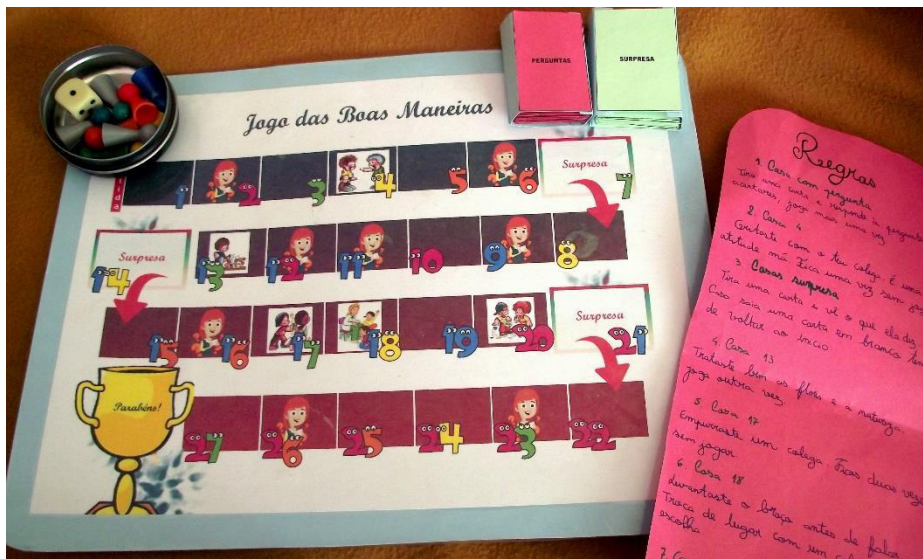 Jogo das Boas Maneiras
PERGUNTAS
SURPRESA
1
2
3
4
5
6
Surpresa
7
Surpresa
14
13
12
11
10
9
8
15
16
17
18
19
20
Surpresa
21
Parabéns!
27
26
25
24
23
22
Regras
1. Casa com pergunta
Tira uma carta e responde à pergunta
acertares, joga mais uma vez
2. Casa 4
Gritaste com o teu colega é uma
atitude má. Fica uma vez sem
3. Casas surpresa
Tira uma carta e vê o que ela diz
Caso saia uma carta em branco
de voltar ao início
4. Casa 13
Trataste bem as flores e a natureza
joga outra vez
5. Casa 17
Empurraste um colega. Ficas duas vezes
sem jogar
6. Casa 18
Levantaste o braço antes de falar
Troca de lugar com um
escolha
7.